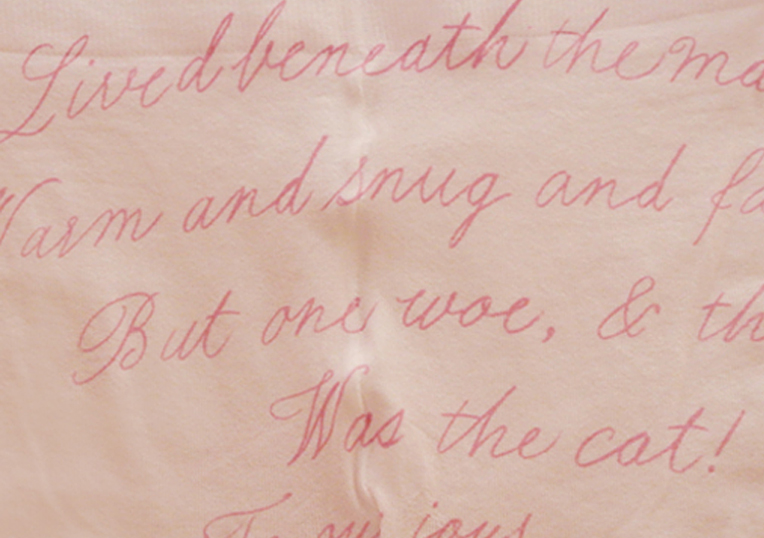 Lived beneath the ma
Warm and snug and fa
But one woe, & th
Was the cat!